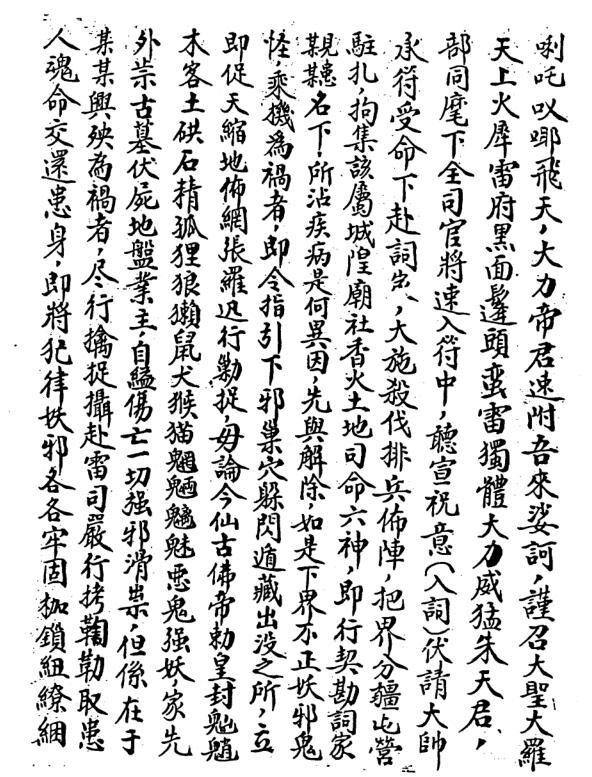 唎吒㕥㖿飛天,大力帝君速附吾來娑訶,謹召大聖大羅
天上火犀雷府黑面鬔頭蛮雷獨體大力威猛朱天君,
部同麾下全司官將速入符中,聽宣祝意(入詞)伏請大帥
承符受命下赴詞,大施殺伐排兵佈陣,把界分疆屯營
駐扎,拘集該屬城隍廟社香火土地司命六神,即行契勘詞家
某患名下,所沾疾病是何異因,先與解除,如是下界不正妖邪鬼
怪,乘機為禍者,即令指引下邪巢穴躲閃遁藏出没之所,立
即促天縮地佈網張羅迅行勦捉,毋論今仙古佛帝勅皇封魈
木客土硔石精狐狸狼獺鼠犬猴猫魍魎魑魅惡鬼强妖,家先
外祟古墓伏屍地盤業主,自縊傷亡一切强邪滑祟,但係在于
某某興殃為禍者,尽行擒捉攝赴雷司嚴行拷鞫勒取患
人魂命交還患身,即將犯律妖邪各各牢固枷鎖紐繚綑